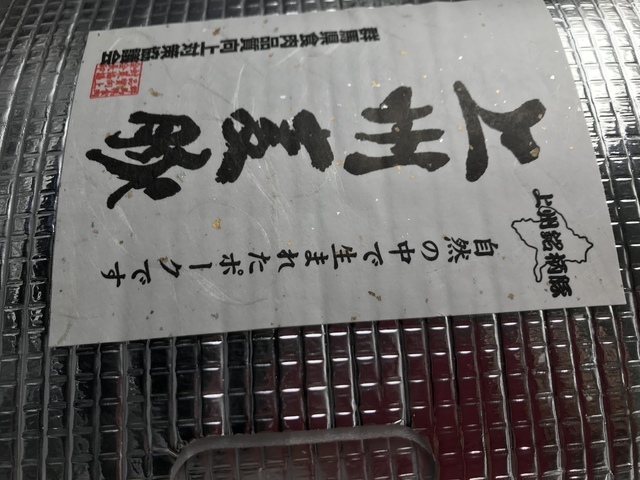 上州銘柄豚
自然の中で生まれたポークです
上州麦豚
群馬県食肉品質向上対策協議会